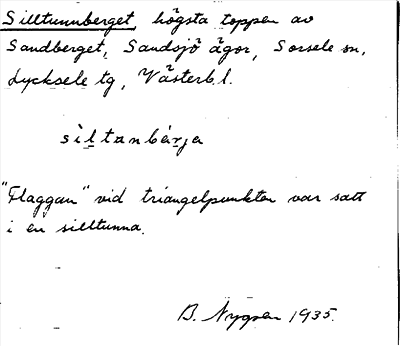 Silltunnberget, högsta toppen av
Sandberget, Sandsjö ägor, Sorsele sn,
Lycksele tg, Västerb. l.
siltanbärja
"Flaggan" vid triangelpunkten var satt
i en silltunna.
B. Nygren 1935.